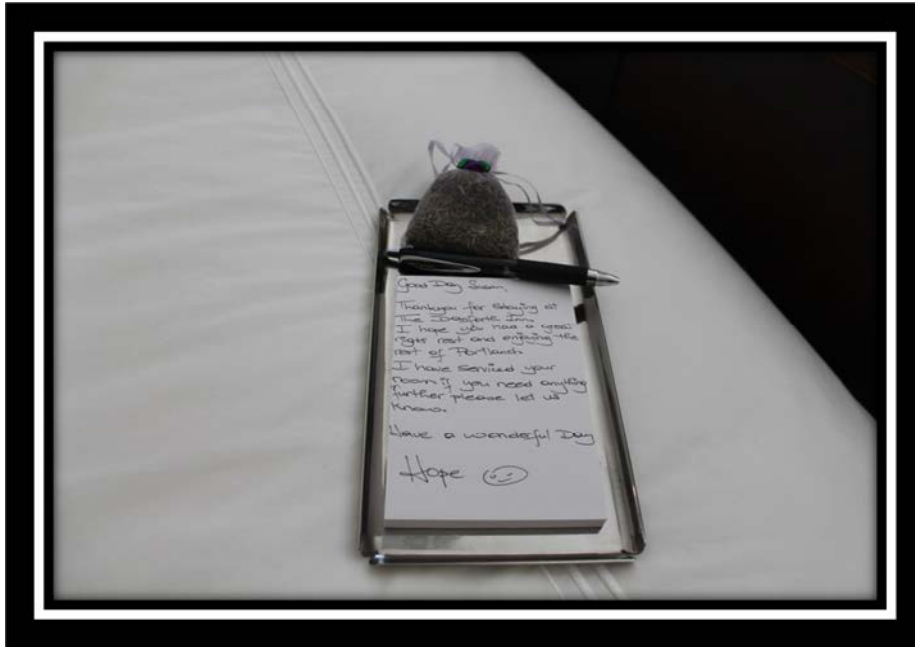 Good Day Susan,
Thankyou for staying at
The Inn.
I hope you had a good
nights rest and enjoying the
rest of Portland.
I have serviced your
room if you need anything
further please let us
know.
Have a wonderful Day
Hope